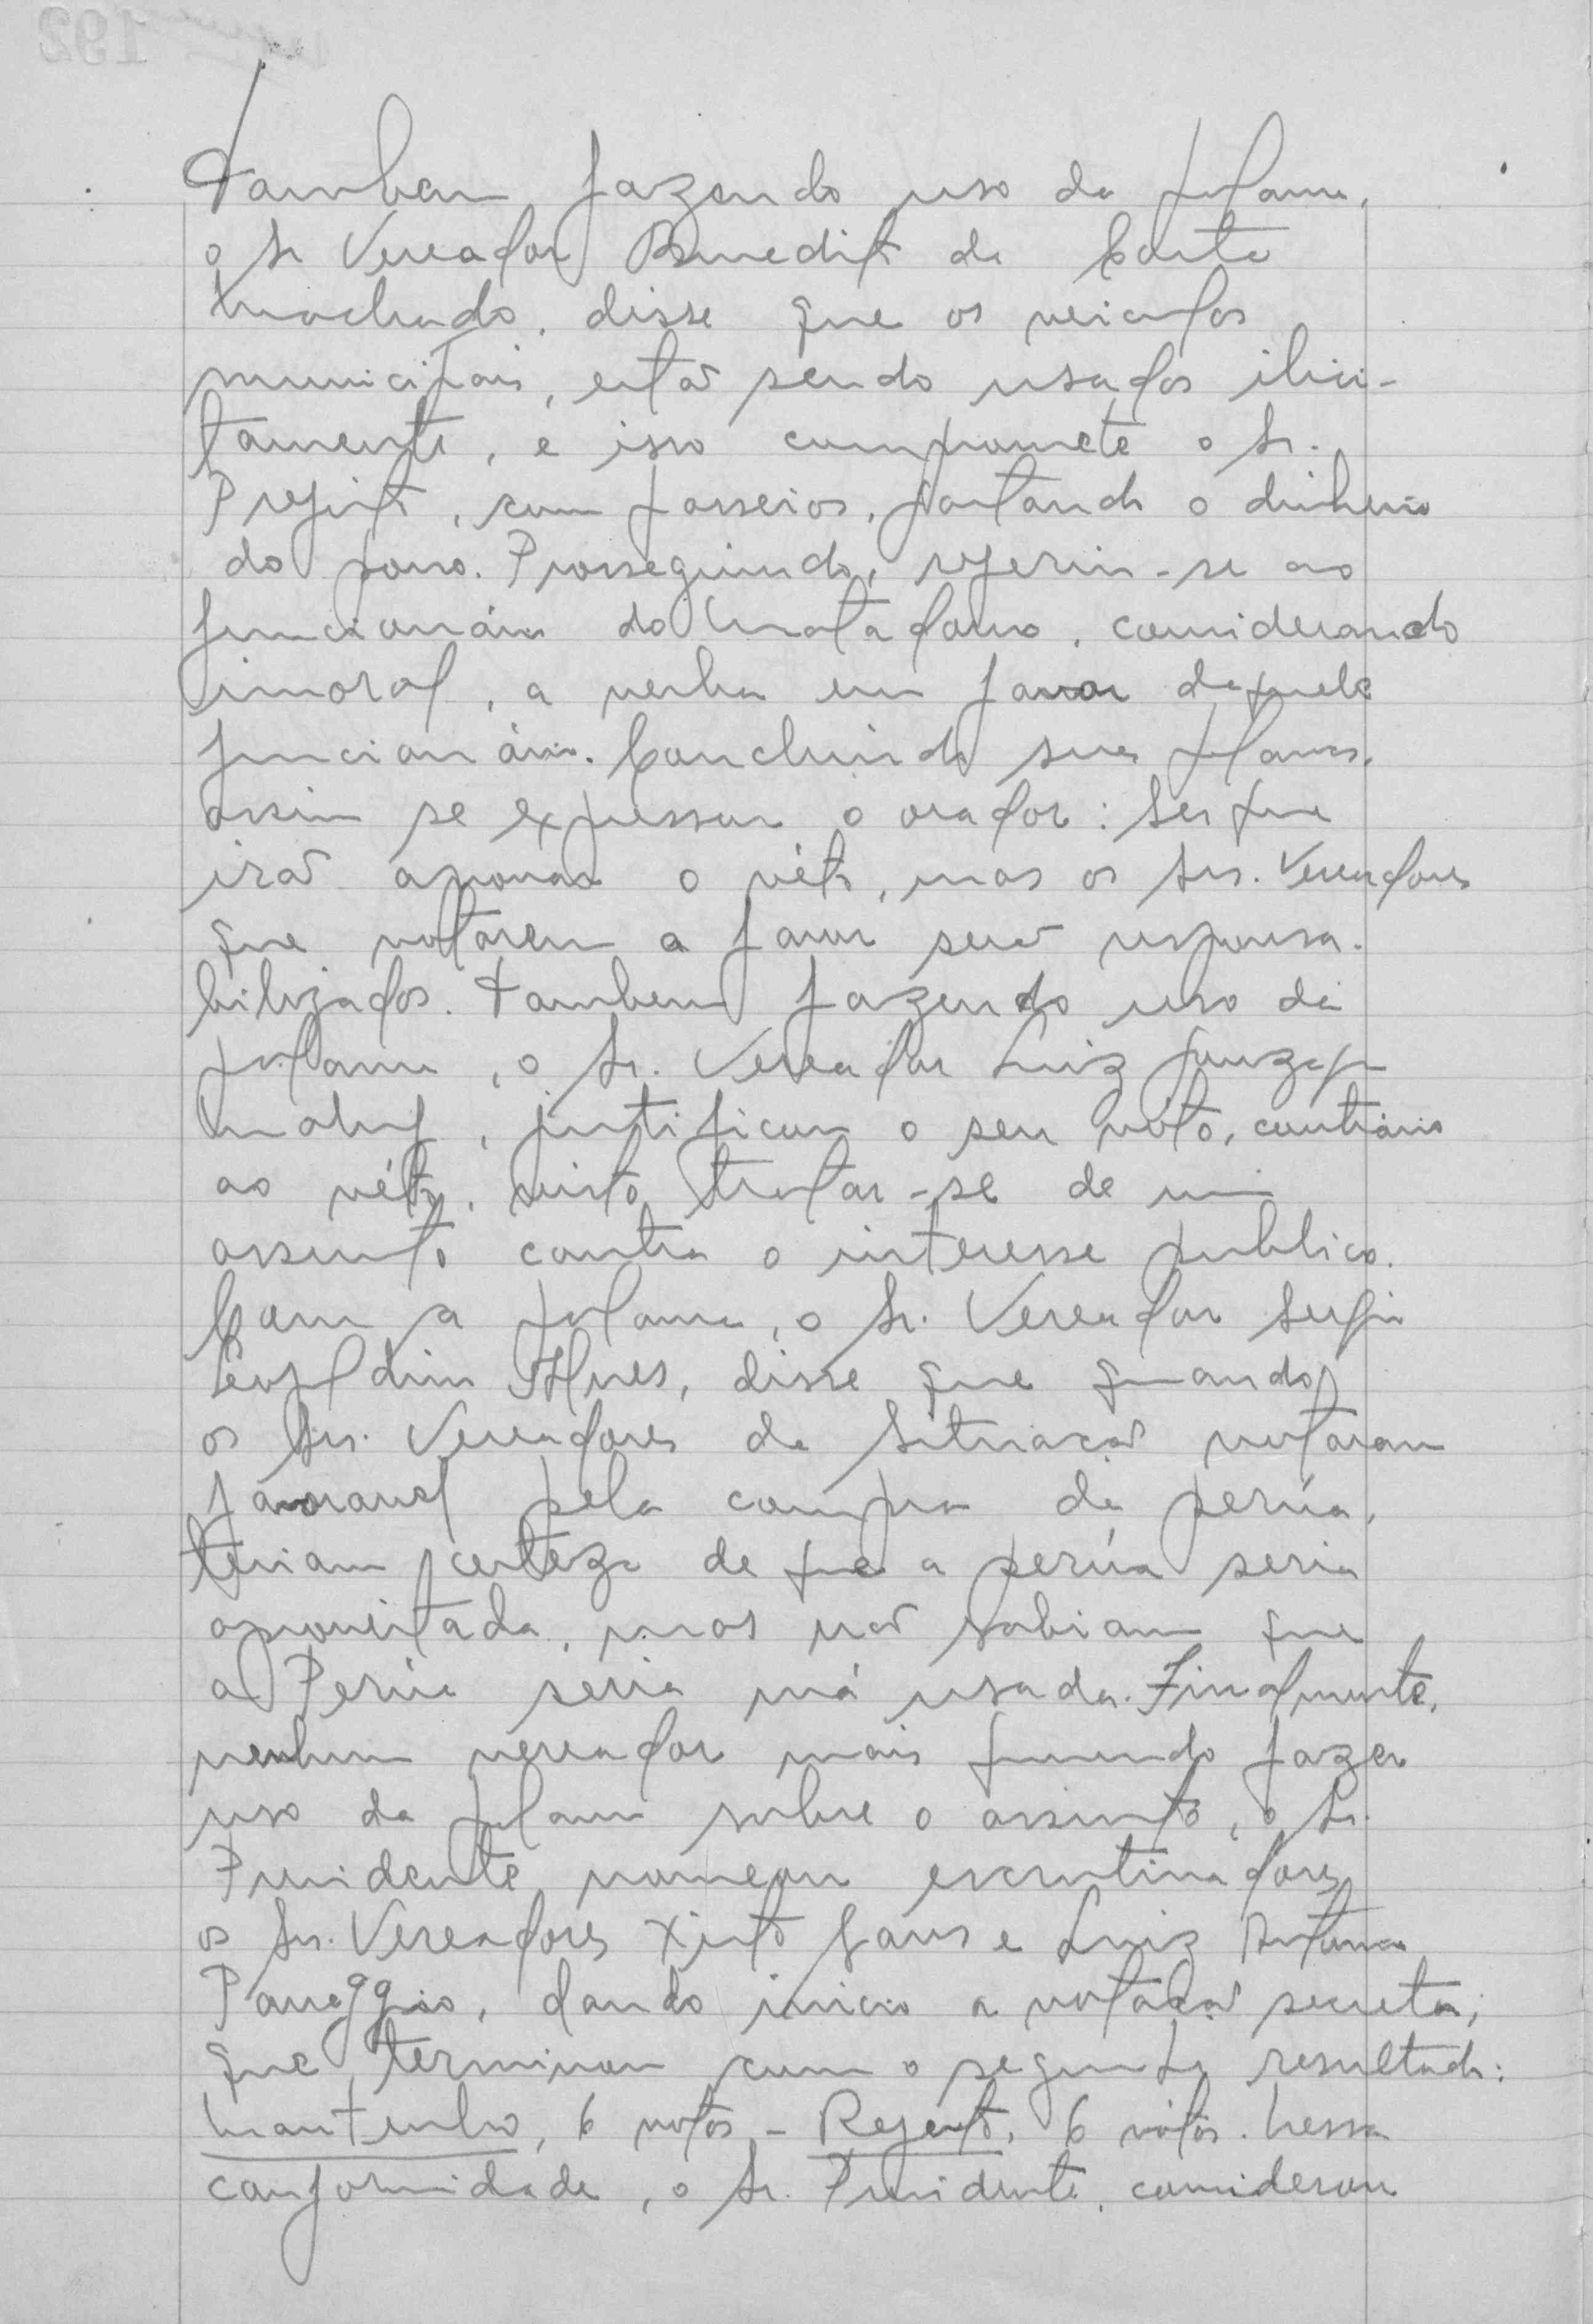 Tambem fazendo uso da palavra,
o Sr Vereador Benedito da Costa
Machado, disse que os veiculos
municipais, estão sendo usados ilici-
tamente, e isso compromete o Sr.
Prefeito, com passeios, gastando o dinheiro
do povo. Prosseguindo, referiu-se ao
funcionário do Matadouro, considerando
imoral, a verba em favor daquele
funcionário. Concluindo suas palavras,
assim se expressou o orador: Sei que
irão aprovar o véto, mas os Srs. Vereadores
que votarem a favor serão responsa-
bilizados. Tambem fazendo uso da
palavra, o Sr. Vereador Luiz
Maluf, justificou o seu vóto, contrário
ao véto, visto tratar-se de um
assunto contra o interesse publico.
Com a palavra, o Sr. Vereador Sergio
Leopoldino Alves, disse que quando
os Srs. Vereadores da Situação votaram
favoravel pela compra da perúa,
teriam certeza de que a perúa seria
aproveitada, mas não sabiam que
a Perúa seria má usada. Finalmente,
nenhum vereador mais querendo fazer
uso da palavra sobre o assunto, o Sr.
Presidente nomeou escrutinadores
os Srs. Vereadores Xisto e Luiz Antonio
Pareggio, dando inicio a votação secreta,
que terminou com o seguinte resultado:
Mantenho, 6 votos - Rejeito, 6 vótos. Nessa
conformidade, o Sr. Presidente, considerou